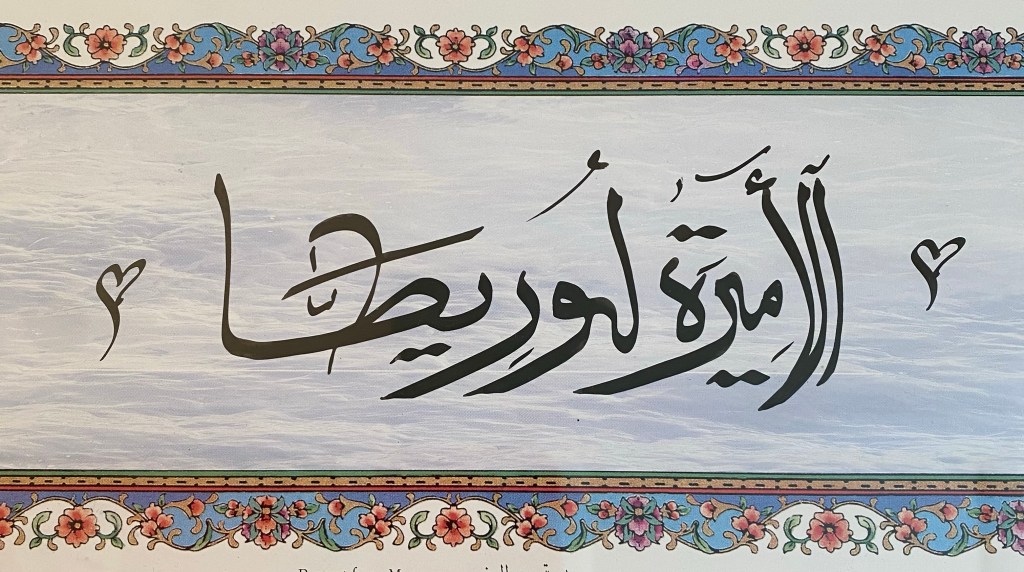 الأميرة لوريطا